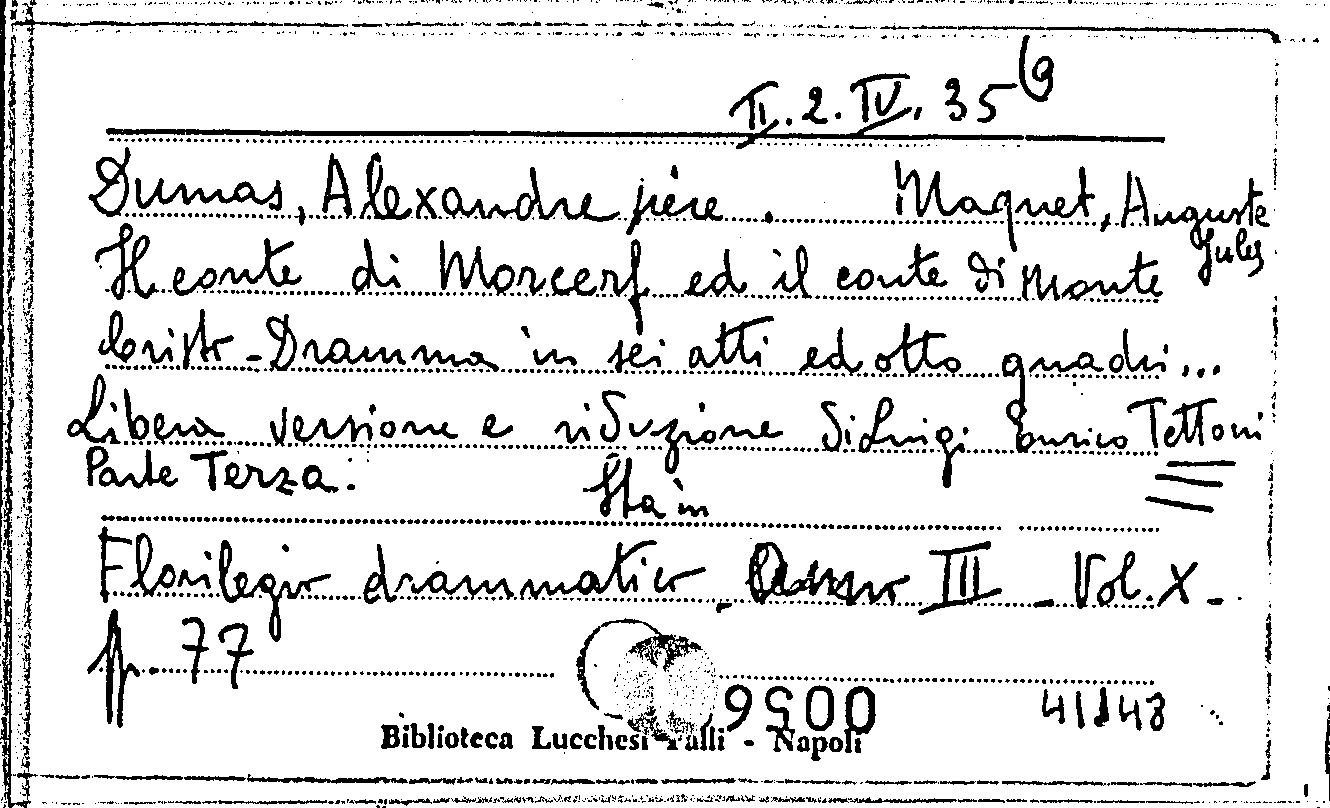 II.2.IV.35(9
Dumas, Alexandre père. Maquet, Auguste Jules
Il conte di Morcerf ed il conte di Monte
Cristo - Dramma in sei atti ed otto quadri...
Libera versione e riduzione di Luigi Enrico Tettoni
Parte Terza.
Sta in
Florilegio drammatico - Anno III - Vol. X -
p. 77
0056
Biblioteca Lucchesi Palli - Napoli